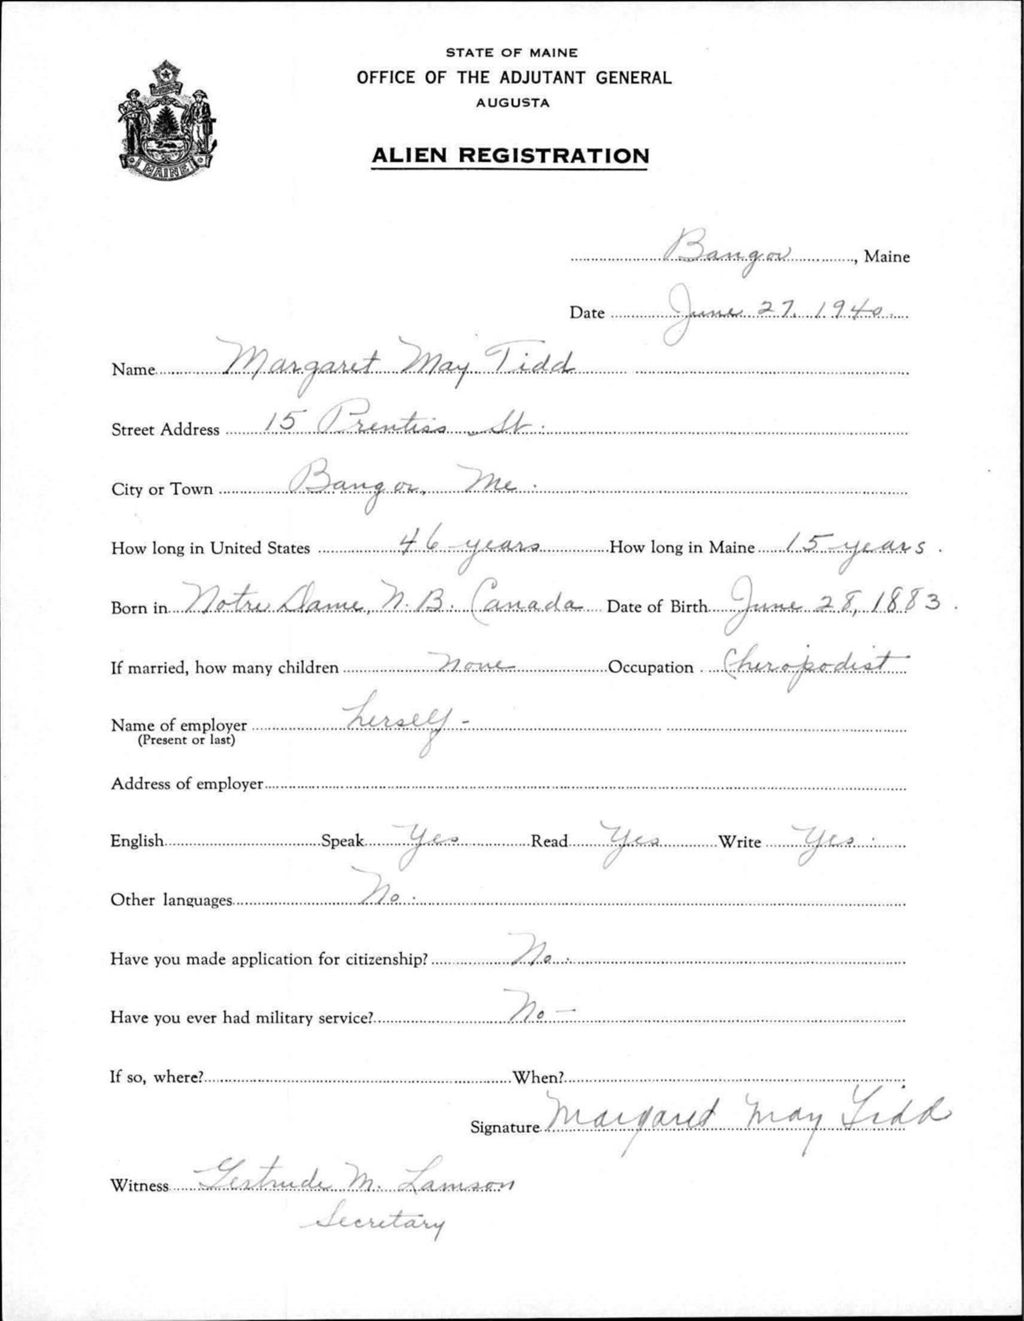 STATE OF MAINE
OFFICE OF THE ADJUTANT GENERAL
AUGUSTA
ALIEN REGISTRATION
MAINE
Bangor, Maine
Date June 27, 1940
Name Margaret May Tidd
Street Address 15 Prentiss St.
City or Town Bangor, Me.
How long in United States 46 years How long in Maine 15 years.
Born in Notre Dame, N.B. Canada Date of Birth June 28, 1883.
If married, how many children none Occupation Chiropodist
Name of employer herself -
(Present or last)
Address of employer
English Speak Yes Read Yes Write Yes.
Other languages No.
Have you made application for citizenship? No.
Have you ever had military service? No -
If so, where? When?
Signature Margaret May Tidd
Witness Gertrude M. Lamson
Secretary